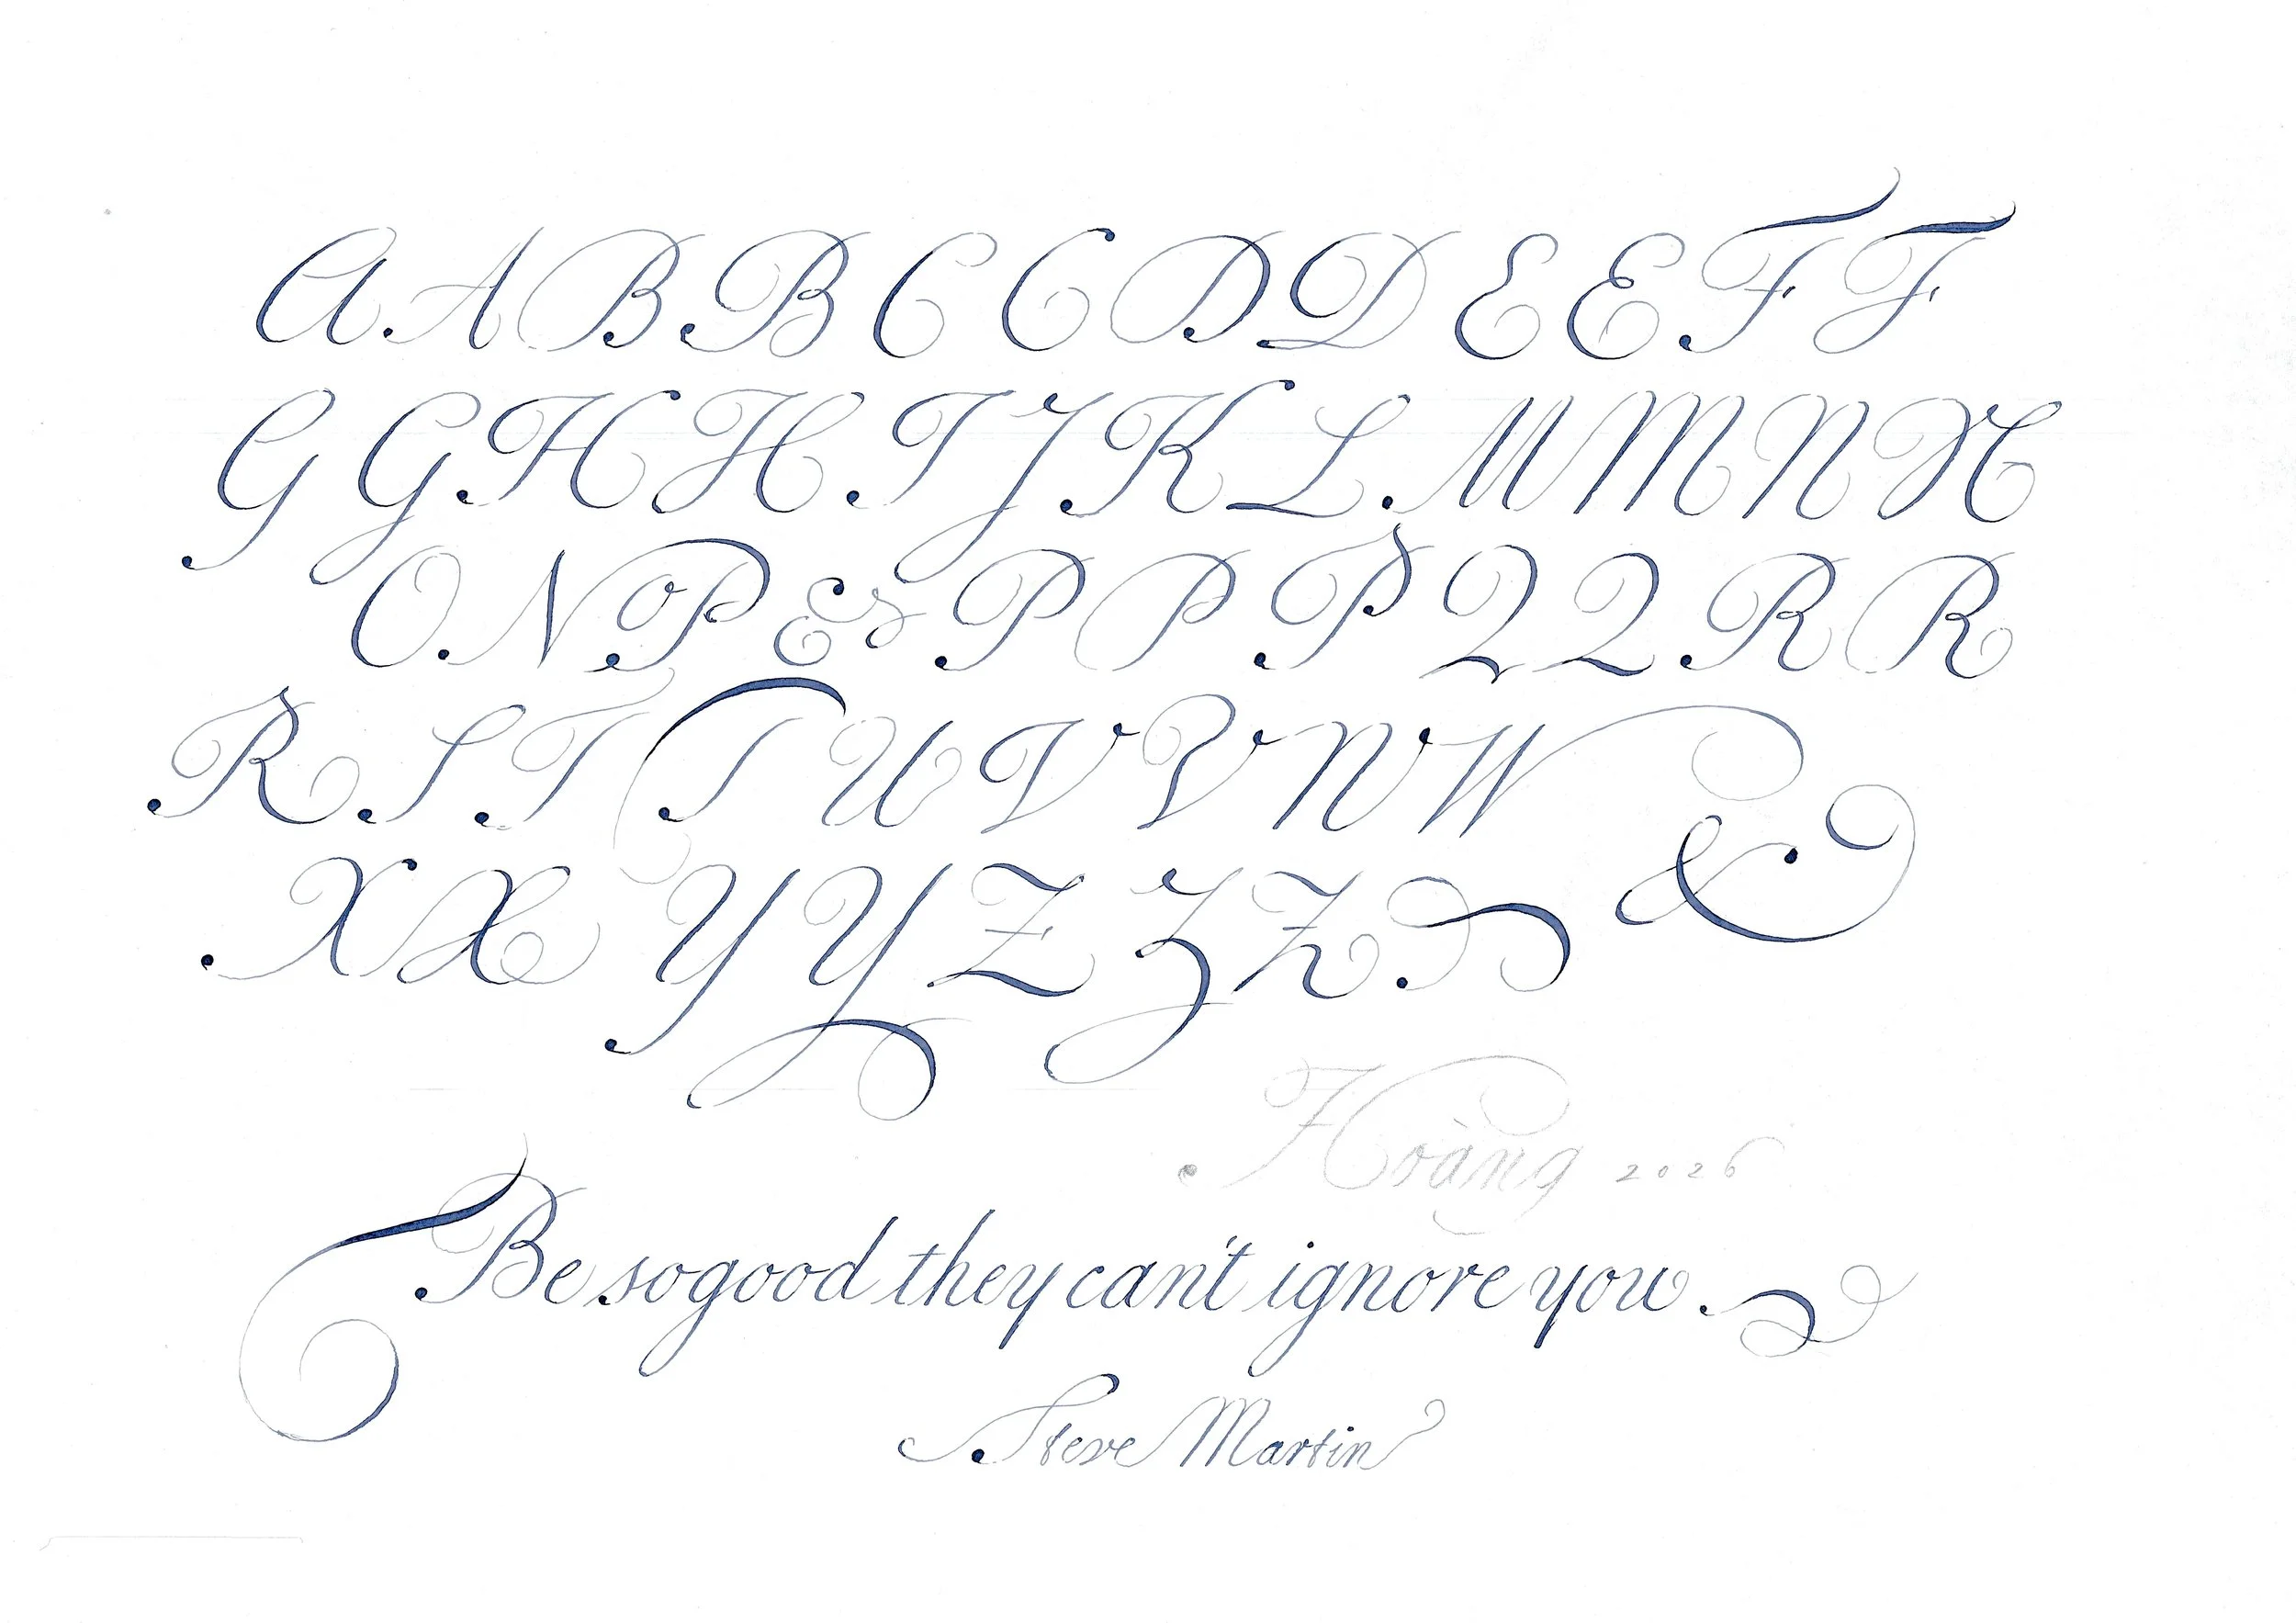 A A B B C C D D E E F F
G G H H I J K L M M N N
O N P & P P P Q Q R R
R S T T U V V W W &
X X Y Y Z Z Z
Hoàng 2026
Be so good they can't ignore you.
Steve Martin